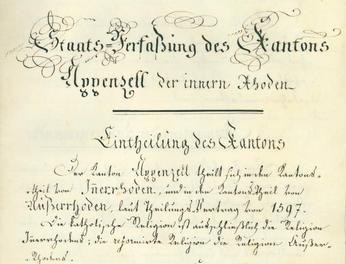 Staats=Verfaßung des Kantons
Appenzell der innern Rhoden
Eintheilung des Kantons
Der Kanton Appenzell theilt sich in den Kantons-
theil von Inerrhoden, und in den Kantonstheil von
Außerrhoden, laut Theilungs Vertrag von 1597.
Die katholische Religion ist ausschließlich die Religion
Inerrhodens; die reformirte Religion die Religion Außer-
Rhodens.